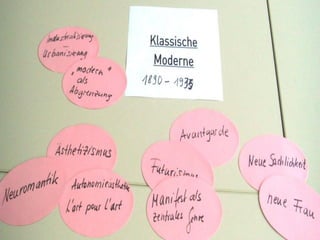 Industrialisierung
–
Urbanisierung
"modern"
als
Abgrenzung
Klassische
Moderne
1890 - 1935
Ästhetizismus
Neuromantik
Autonomieästhetik
L'art pour l'art
Avantgarde
Futurismus
Manifest als
zentrales Genre
Neue Sachlichkeit
neue Frau